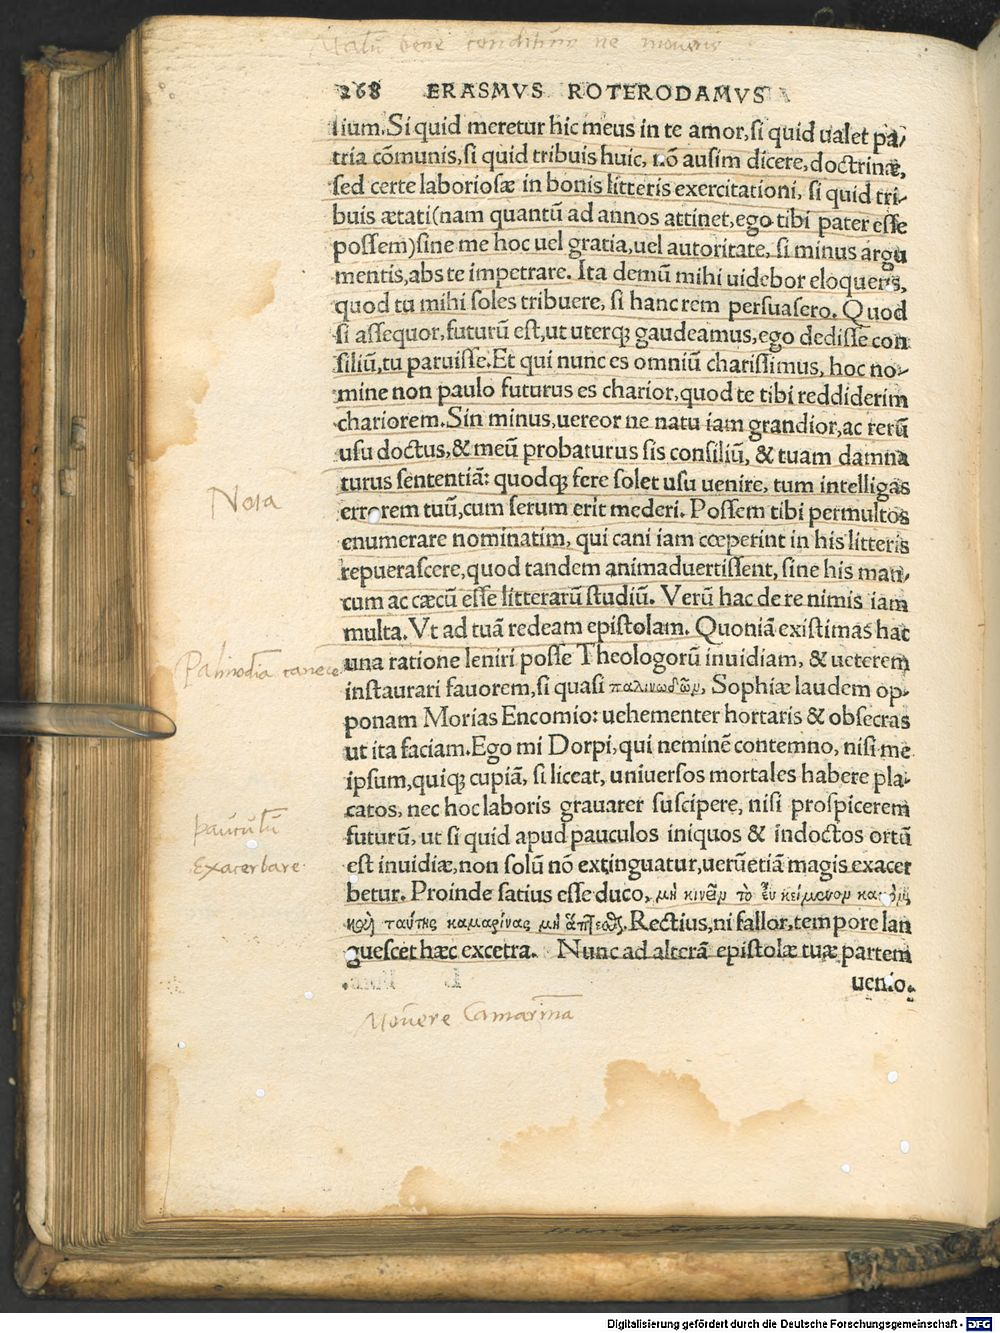 Malū bene conditum ne moveris
268 ERASMVS ROTERODAMVS
lium. Si quid meretur hic meus in te amor, si quid ualet pa/
tria cōmunis, si quid tribuis huic, nō ausim dicere, doctrinæ,
sed certe laboriosæ in bonis litteris exercitationi, si quid tri-
buis ætati(nam quantū ad annos attinet, ego tibi pater esse
possem)sine me hoc uel gratia, uel autoritate, si minus argu
mentis, abs te impetrare. Ita demū mihi uidebor eloquens,
quod tu mihi soles tribuere, si hanc rem persuasero. Quod
si assequor, futurū est, ut uterq; gaudeamus, ego dedisse con
siliū, tu paruisse. Et qui nunc es omniū charissimus, hoc no-
mine non paulo futurus es charior, quod te tibi reddiderim
chariorem. Sin minus, uereor ne natu iam grandior, ac rerū
usu doctus, & meū probaturus sis consiliū, & tuam damna
turus sententiā: quodq; fere solet usu uenire, tum intelligas
Nota
errorem tuū, cum serum erit mederi. Possem tibi permultos
enumerare nominatim, qui cani iam cœperint in his litteris
repuerascere, quod tandem animaduertissent, sine his man/
cum ac cæcū esse litterarū studiū. Verū hac de re nimis iam
multa. Vt ad tuā redeam epistolam. Quoniā existimas hac
Palinodia canere
una ratione leniri posse Theologorū inuidiam, & ueterem
instaurari fauorem, si quasi παλινωδῶν, Sophiæ laudem op-
ponam Morias Encomio: uehementer hortaris & obsecras
ut ita faciam. Ego mi Dorpi, qui neminē contemno, nisi me
ipsum, quiq; cupiā, si liceat, uniuersos mortales habere pla-
catos, nec hoc laboris grauarer suscipere, nisi prospicerem
pauculū
futurū, ut si quid apud pauculos iniquos & indoctos ortū
Exacerbare
est inuidiæ, non solū nō extinguatur, uerūetiā magis exacer
betur. Proinde satius esse duco, μὴ κινεῖν τὸ εὖ κείμενον
ταύτης καμαρίνας μὴ Rectius, ni fallor, tempore lan
guescet hæc excetra. Nunc ad alterā epistolæ tuæ partem
uenio.
Mouere Camarinā
Digitalisierung gefördert durch die Deutsche Forschungsgemeinschaft - DFG